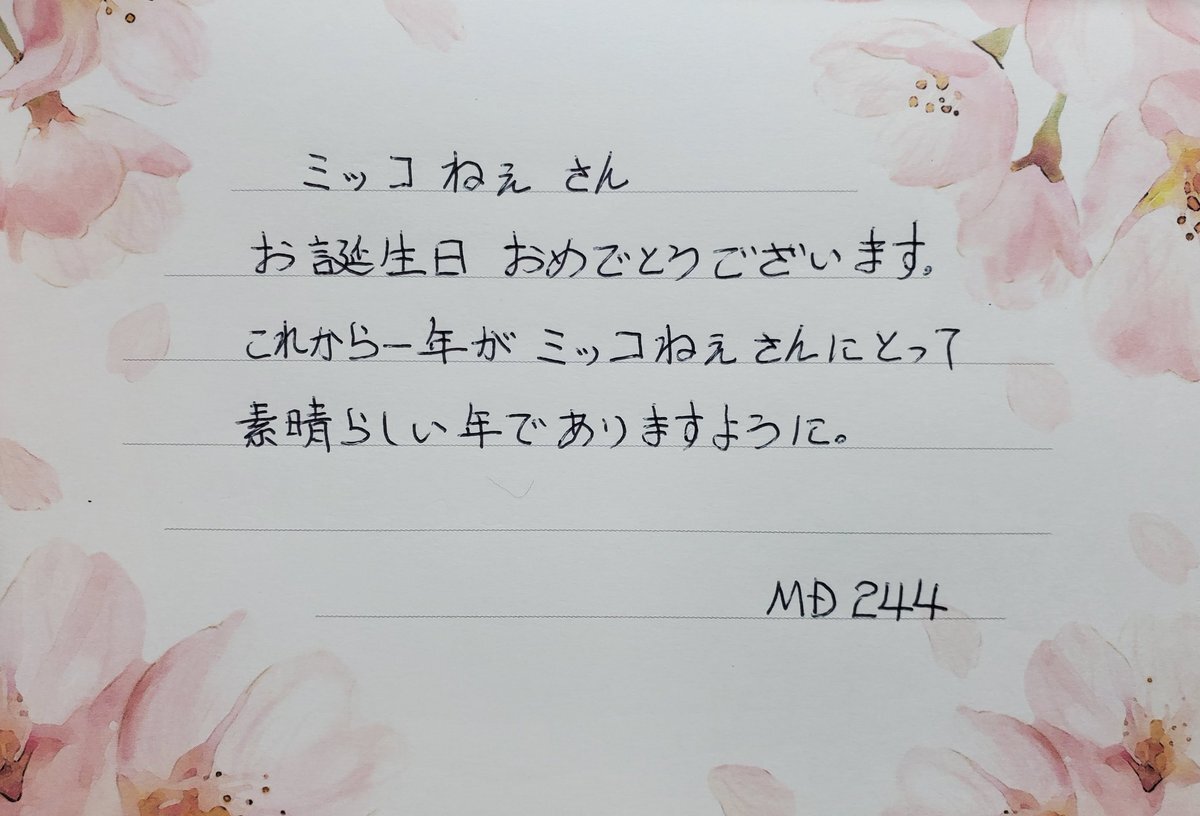 ミッコ ねぇ さん
お誕生日 おめでとうございます。
これから一年が ミッコねぇさんにとって
素晴らしい年でありますように。
MD 244